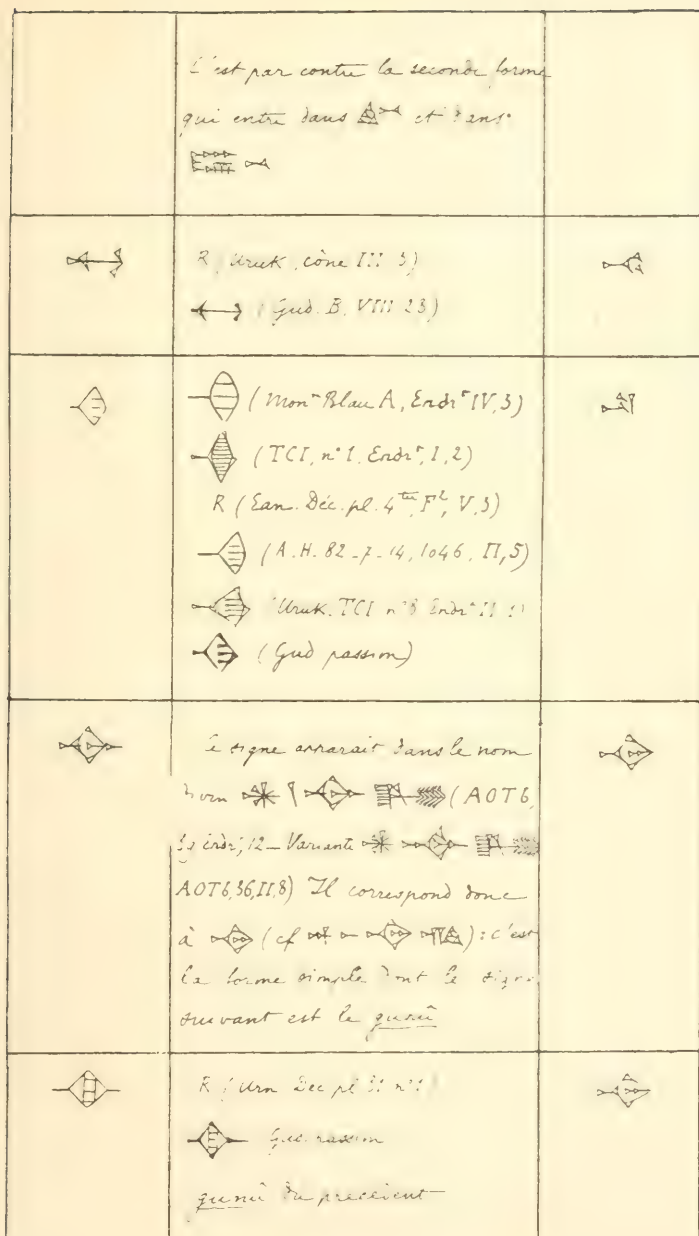 C'est par contre la seconde forme
qui entre dans et dans
R (Uruk, cône III 3)
(Gud. B, VIII 23)
(Monᵗ Blau A, Endrᵗ IV, 3)
(TCI, n° 1. Endrᵗ, I, 2)
R (Ean. Déc. pl. 4ᵗᵉʳ, Fˡ, V, 3)
(A. H. 82-7-14, 1046, II, 5)
Uruk. TCI n° Endrᵗ II
(Gud passim)
Ce signe apparait dans le nom
(AOT6,
endrᵗ, 12 _ Variante
AOT6, 36, II, 8) Il correspond donc
à (cf ) : c'est
la forme simple dont le signe
suivant est le gunû
R (Urn Déc pl n° 1)
Gud. passim
gunû du précédent